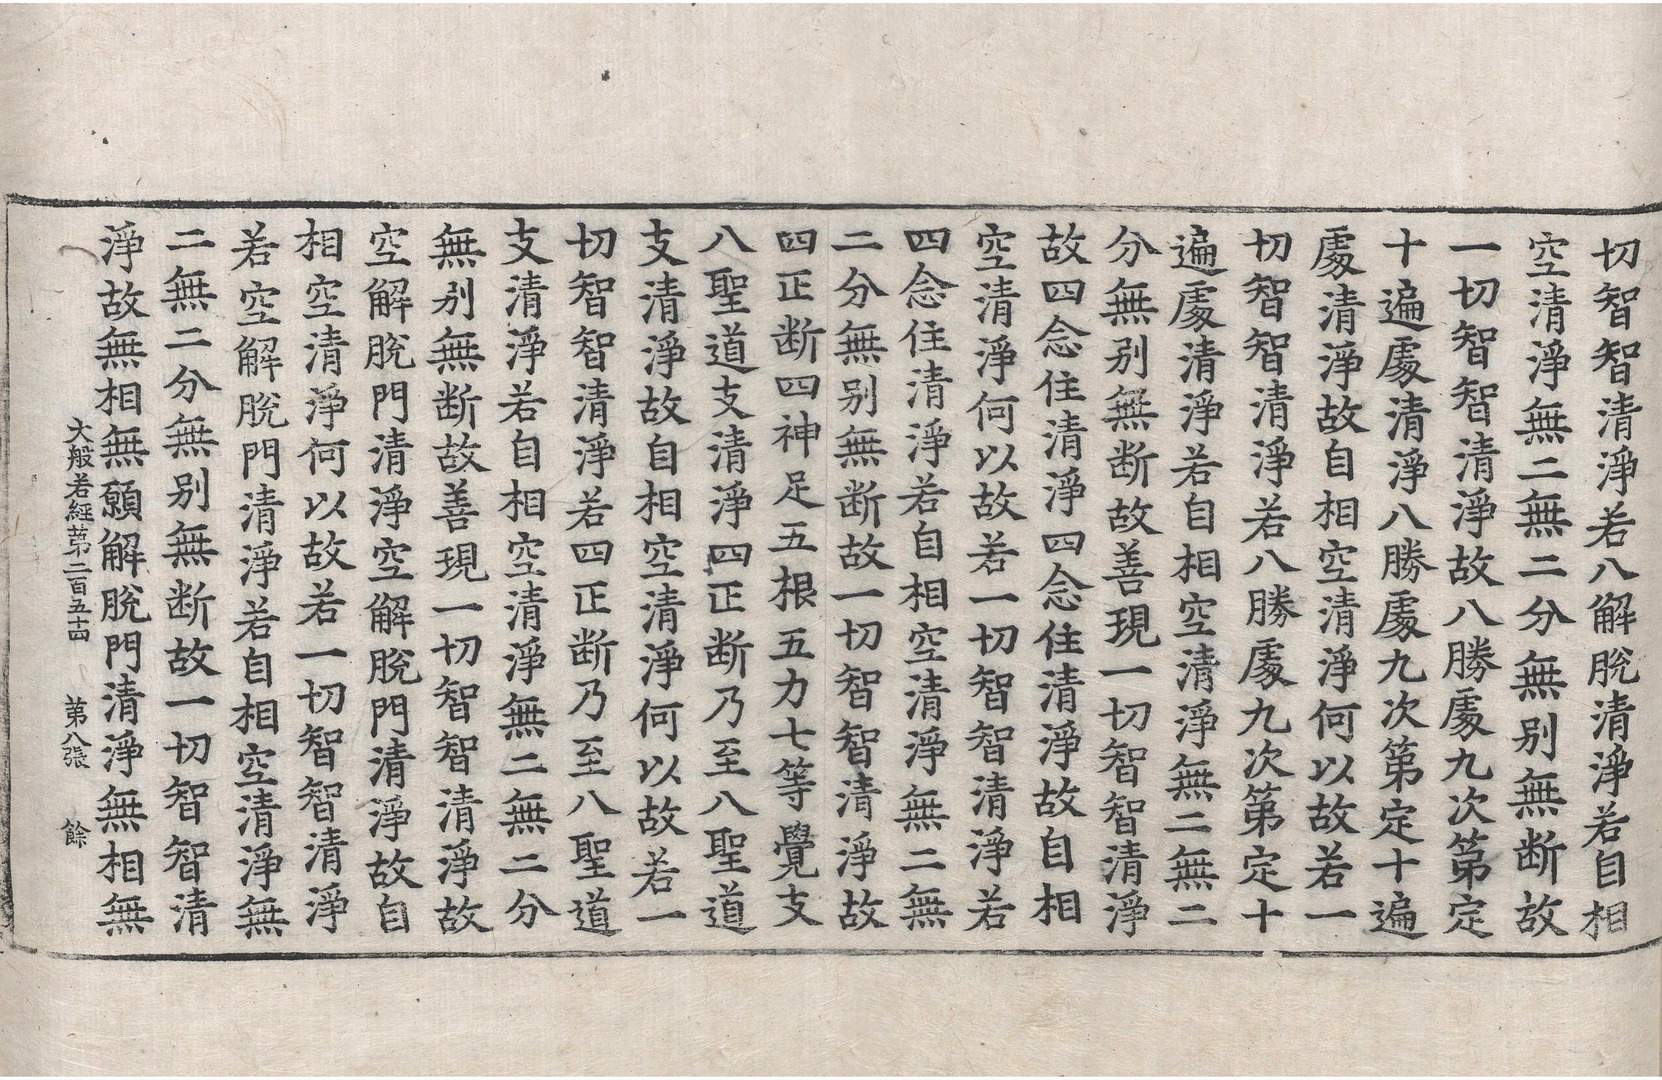 切智智清淨若八解脫清淨若自相
空清淨無二無二分無别無断故
一切智智清淨故八勝處九次第定
十遍處清淨八勝處九次第定十遍
處清淨故自相空清淨何以故若一
切智智清淨若八勝處九次第定十
遍處清淨若自相空清淨無二無二
分無别無断故善現一切智智清淨
故四念住清淨四念住清淨故自相
空清淨何以故若一切智智清淨若
四念住清淨若自相空清淨無二無
二分無别無断故一切智智清淨故
四正断四神足五根五力七等覺支
八聖道支清淨四正断乃至八聖道
支清淨故自相空清淨何以故若一
切智智清淨若四正断乃至八聖道
支清淨若自相空清淨無二無二分
無别無断故善現一切智智清淨故
空解脫門清淨空解脫門清淨故自
相空清淨何以故若一切智智清淨
若空解脫門清淨若自相空清淨無
二無二分無别無断故一切智智清
淨故無相無願解脫門清淨無相無
大般若經苐二百五十四 第八張 餘